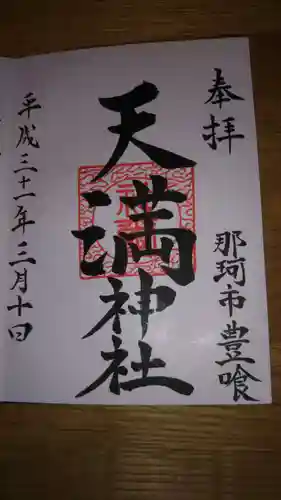 奉拝
那珂市豊喰
天満神社
平成三十一年三月十日